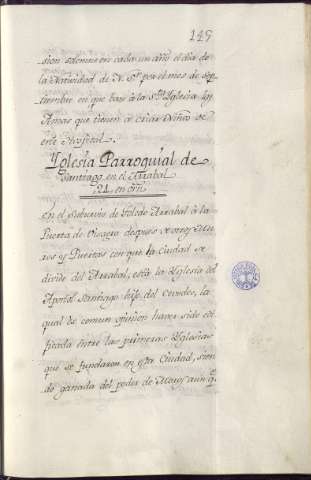 149
sion solemne en cada un año el dia de
la Natividad de N. Sª por el mes de Sep
tiembre en que bajo à la Stª Yglesia
Amas que tienen à criar Niños de
este Hospital.
Yglesia Parroquial de
Santiago en el Arrabal
21. en orn
En el Suburvio de Toledo Arrabal à la
Puerta de Visagra despues de
y Puertas con que la Ciudad se
divide del Arrabal, està la Yglesia del
Apostol Santiago hijo del Cevedeo, la
qual de comun opinion haver sido edi
ficada entre las primeras Yglesias
que se fundaron en esta Ciudad, sien
do ganada del poder de Moros aun q.